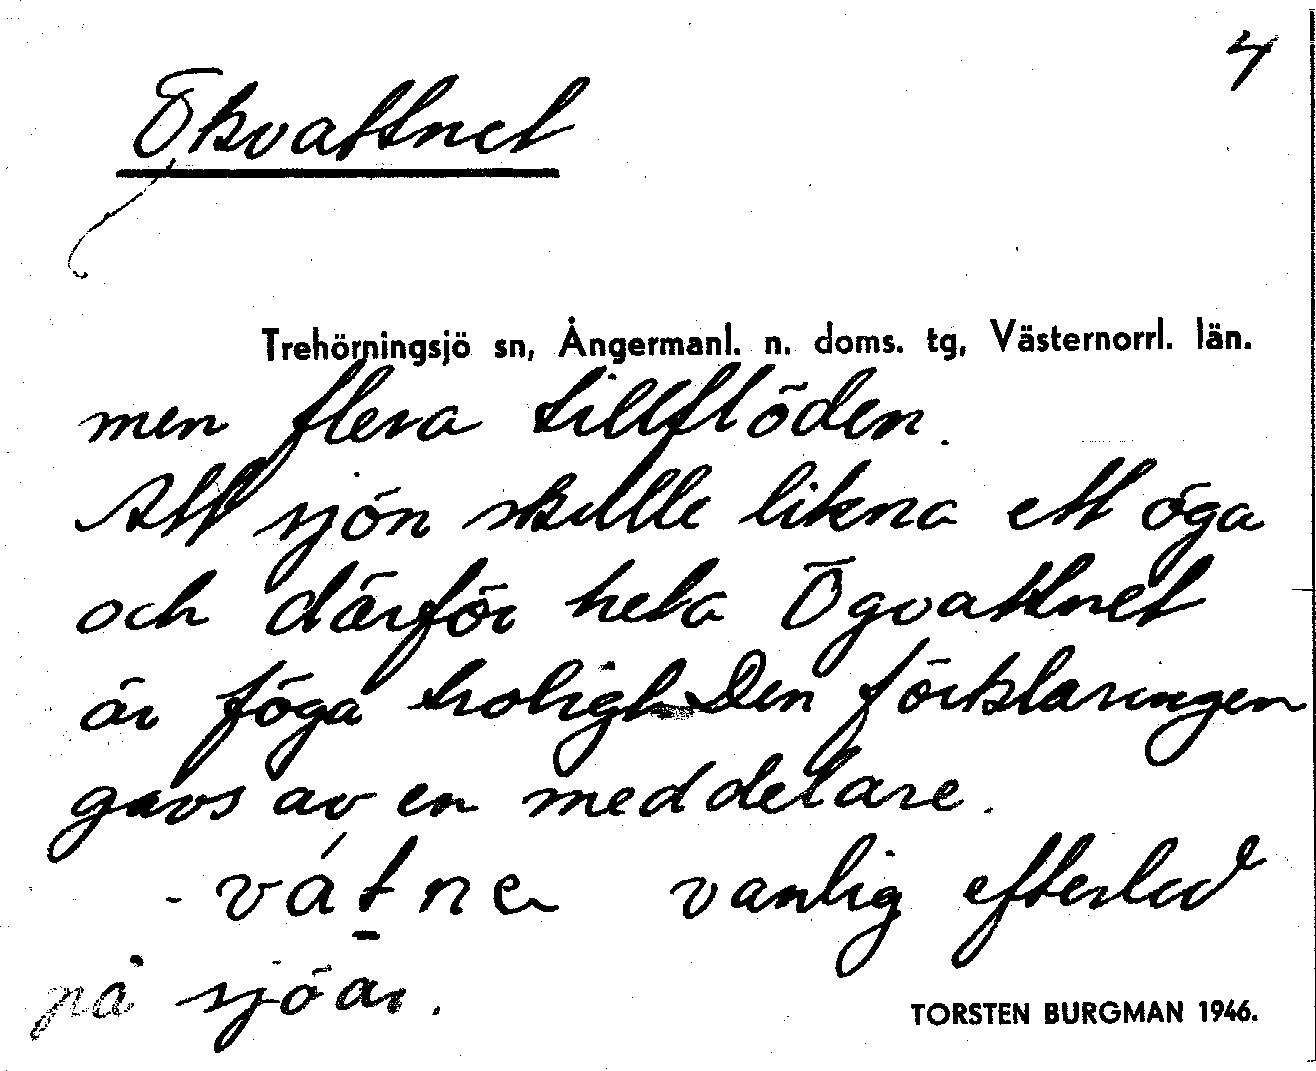 4
Ökvattnet
Trehörningsjö sn, Ångermanl. n. doms. tg, Västernorrl. län.
men flera tillflöden.
Att sjön skulle likna ett öga
och därför heta Ögvattnet
är föga troligt. Den förklaringen
gavs av en meddelare.
- vátne vanlig efterled
på sjöar.
TORSTEN BURGMAN 1946.